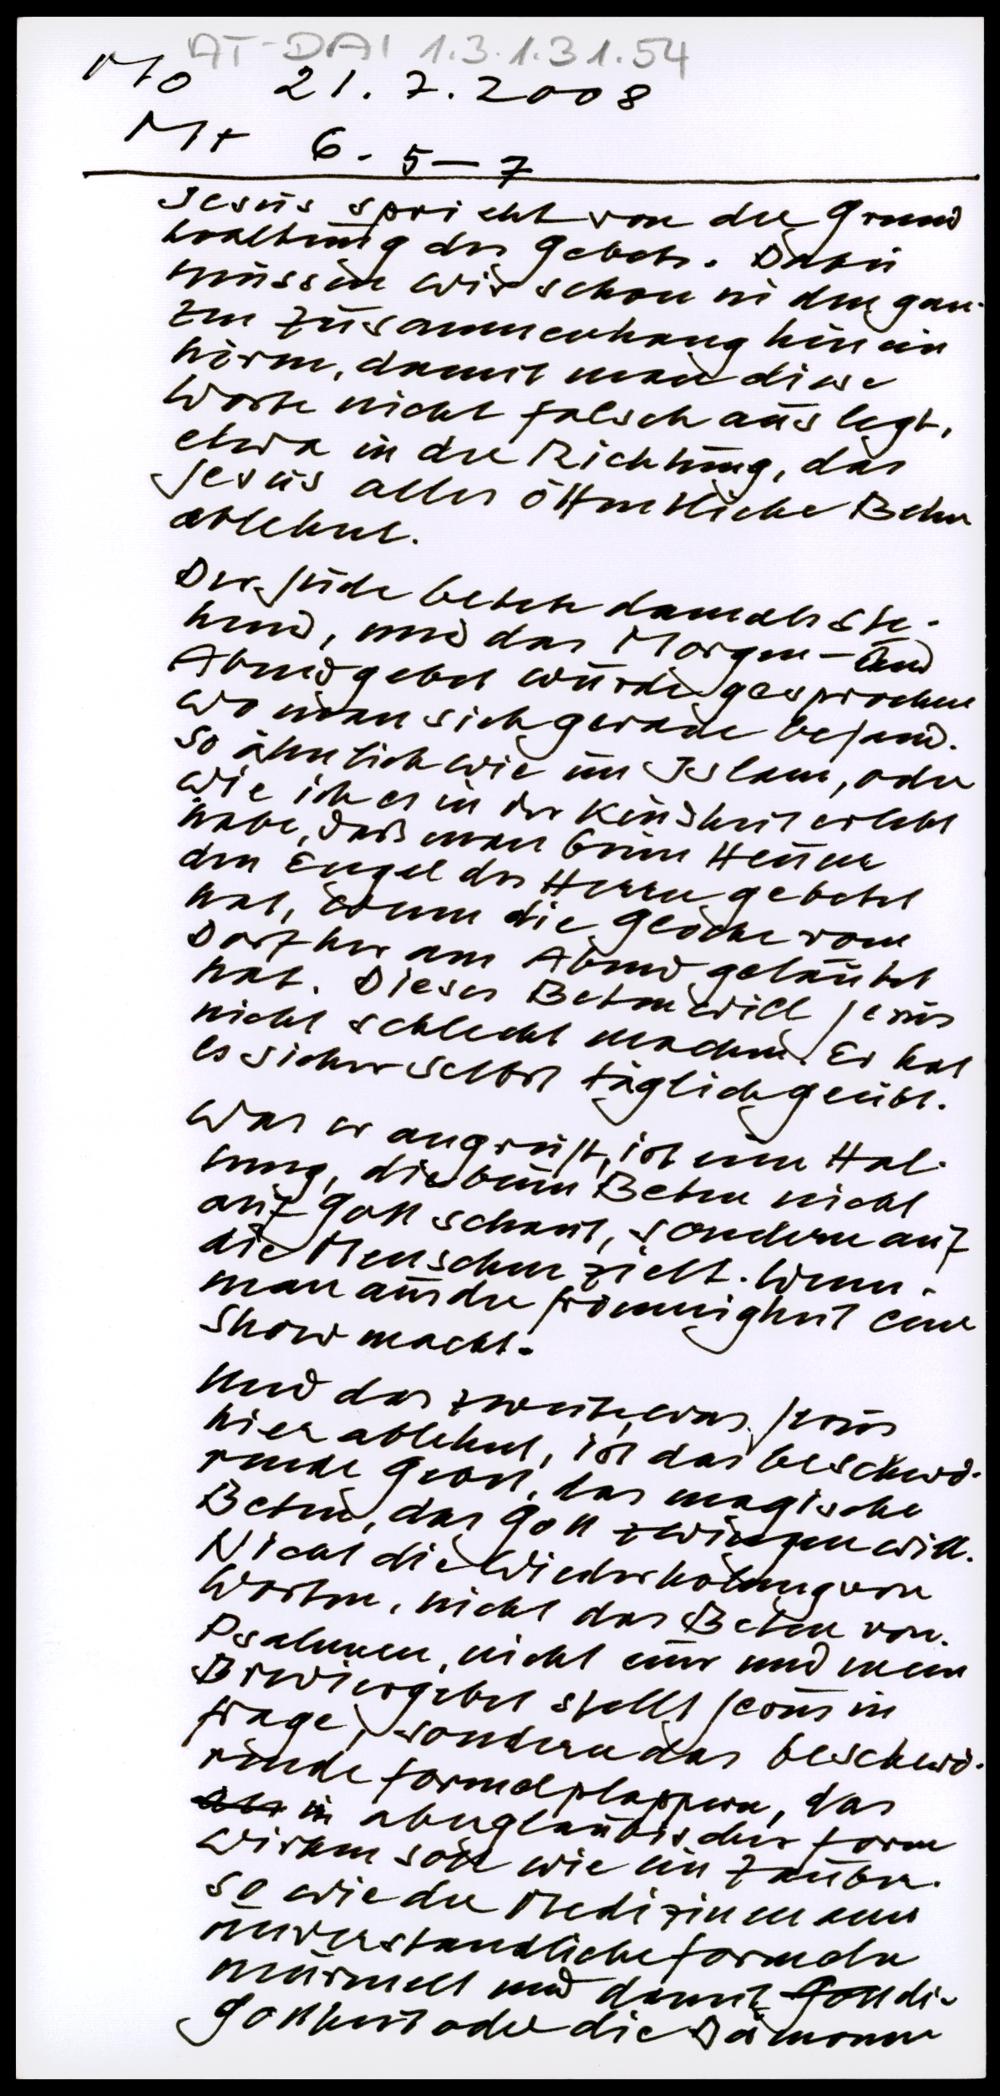 AT-DAI 1.3.1.31.54
Mo 21.7.2008
Mt 6.5-7
Jesus spricht von der Grund
haltung des Gebets. Dabei
müssen wir schon in den gan-
zen Zusammenhang hinein
hören, damit man diese
Worte nicht falsch auslegt,
etwa in der Richtung, das
Jesus alles öffentliche Beten
ablehnt.
Der Jude betete damals ste-
hend, und das Morgen- und
Abendgebet wurde gesprochen
wo man sich gerade befand.
So ähnlich wie im Islam, oder
wie ich es in der Kindheit erlebt
habe, daß man beim Heuen
den Engel des Herrn gebetet
hat, wenn die Glocke vom
Dorf her am Abend geläutet
hat. Dieses Beten will Jesus
nicht schlecht machen. Er hat
es sicher selbst täglich geübt.
Was er angreift, ist eine Hal-
tung, die beim Beten nicht
auf Gott schaut, sondern auf
die Menschen zielt. Wenn
man aus der Frömmigkeit eine
Show macht.
Und das zweite, was Jesus
hier ablehnt, ist das beschwö-
rende Gebet, das magische
Beten, das Gott zwingen will.
Nicht die Wiederholung von
Worten, nicht das Beten von
Psalmen, nicht euer und mein
Breviergebet stellt Jesus in
Frage, sondern das beschwö-
rende Formelplappern, das
in abergläubischer Form
wirken soll wie ein Zauber.
So wie der Medizinmann
unverständliche Formeln
murmelt und damit Gott die
Gottheit oder die Dämonen